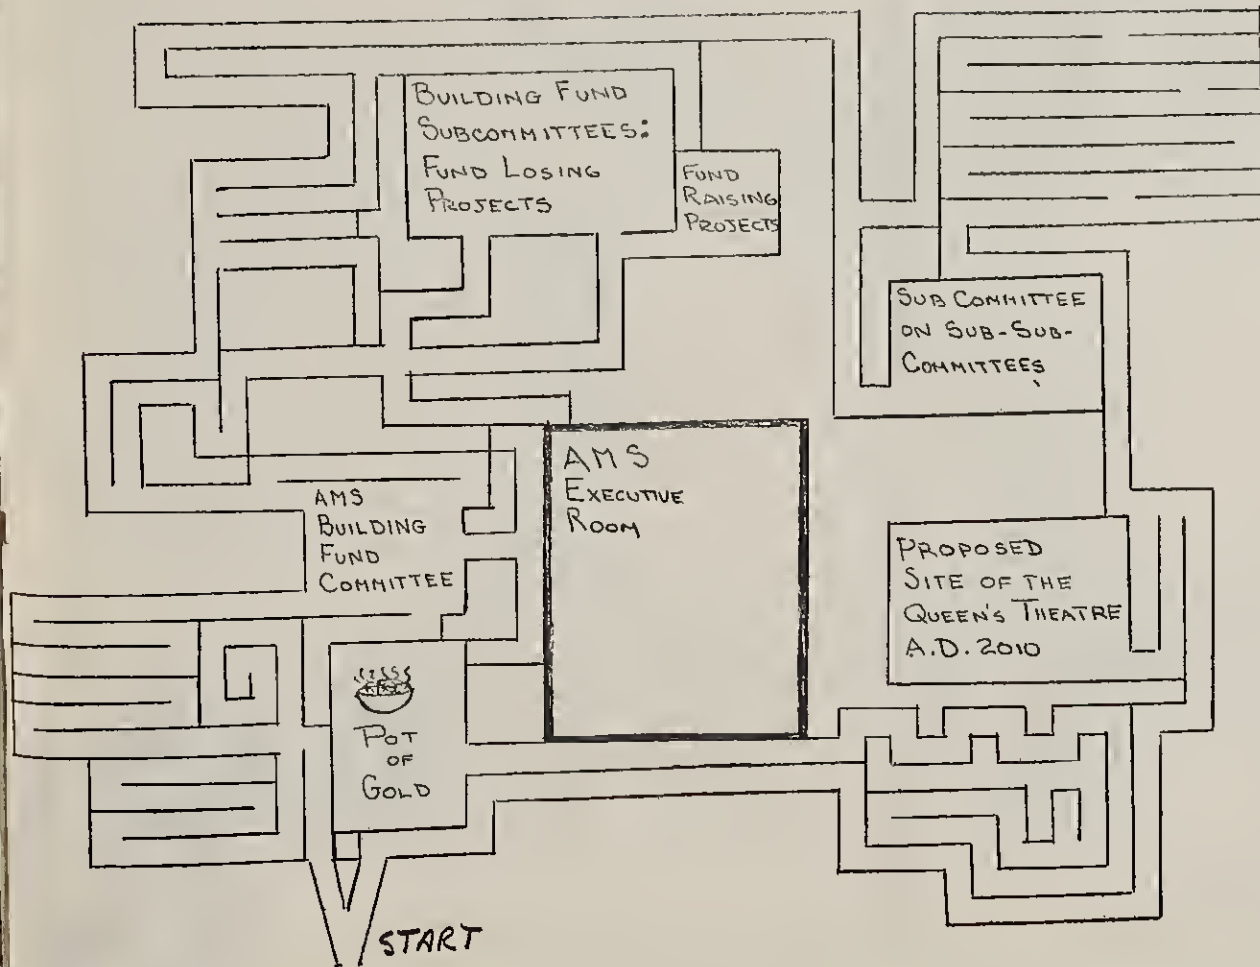 BUILDING FUND
SUBCOMMITTEES:
FUND LOSING
PROJECTS
FUND
RAISING
PROJECTS
SUB COMMITTEE
ON SUB-SUB-
COMMITTEES
AMS
EXECUTIVE
ROOM
AMS
BUILDING
FUND
COMMITTEE
PROPOSED
SITE OF THE
QUEEN'S THEATRE
A.D. 2010
POT
OF
GOLD
START